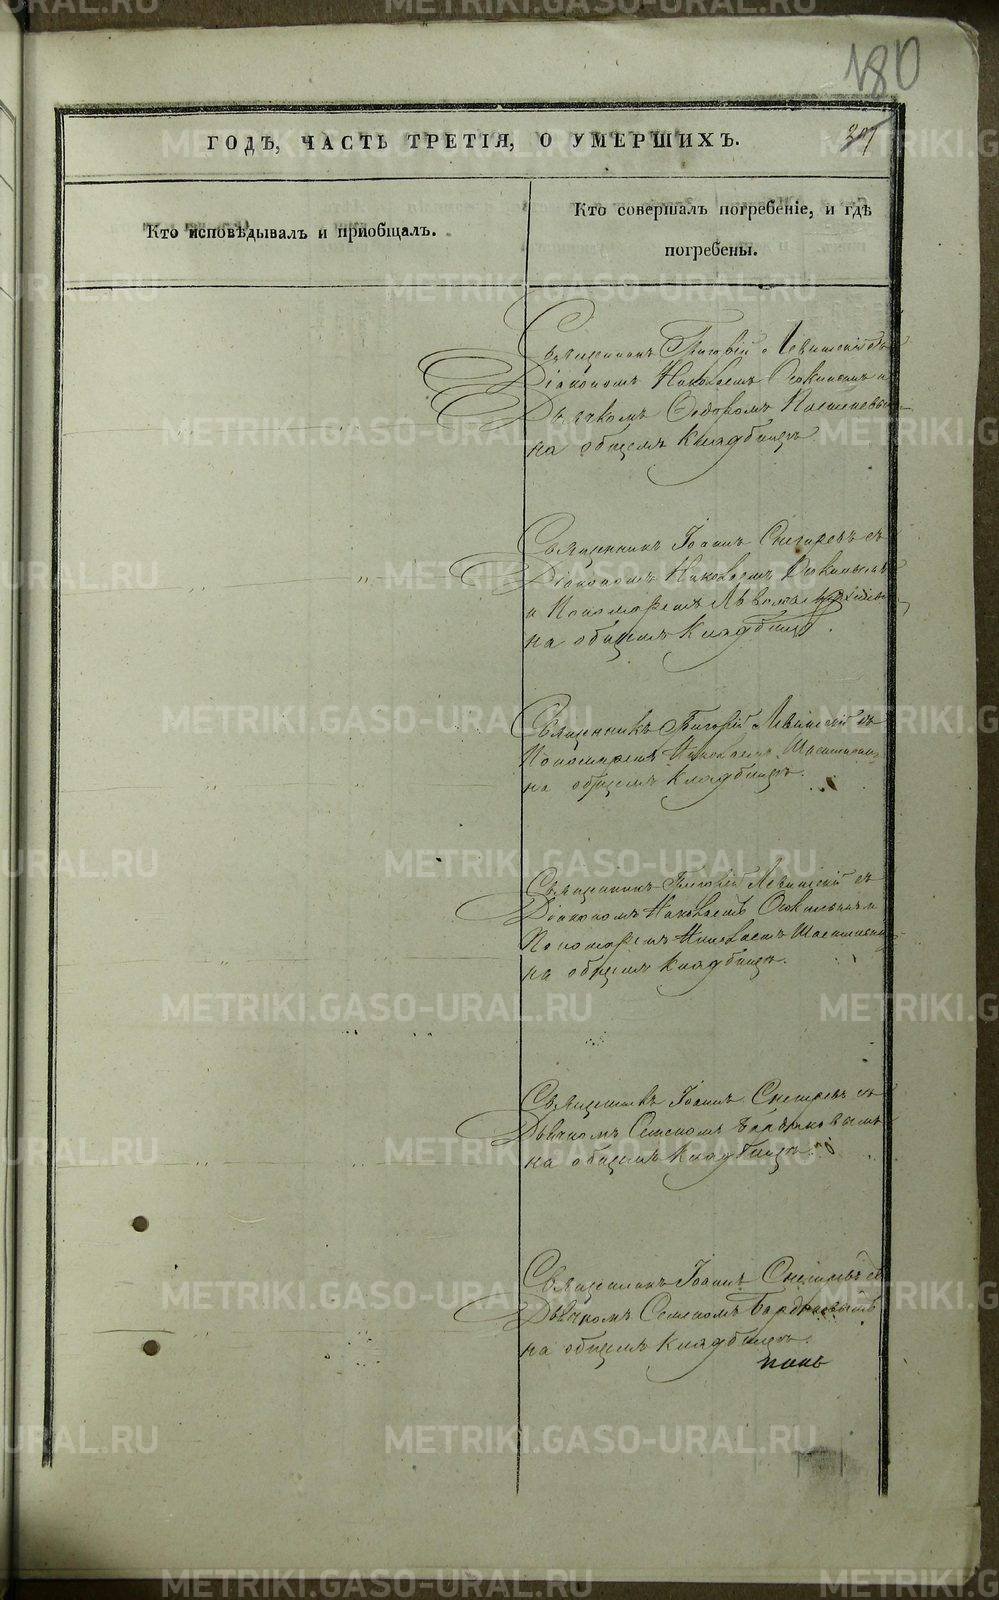 180
307
ГОДѢ, ЧАСТЬ ТРЕТІЯ, О УМЕРШИХЪ.
Кто исповѣдывалъ и пріобщалъ.
Кто совершалъ погребеніе, и гдѣ
погребены.
Священникъ Григорій Левитскій съ
Діакономъ Николаемъ и
Дьячкомъ Федоромъ
на общемъ кладбищѣ
Священникъ Іоаннъ Снегиревъ съ
Діакономъ Николаемъ
и Пономаремъ
на общемъ кладбищѣ.
Священникъ Григорій Левитскій съ
Пономаремъ Николаемъ
на общемъ кладбищѣ.
Священникъ Григорій Левитскій съ
Діакономъ Николаемъ и
Пономаремъ Николаемъ
на общемъ кладбищѣ.
Священникъ Іоаннъ Снегиревъ съ
Дьячкомъ Семеномъ
на общемъ кладбищѣ.
Священникъ Іоаннъ Снегиревъ съ
Дьячкомъ Семеномъ
на общемъ кладбищѣ.
METRIKI.GASO-URAL.RU